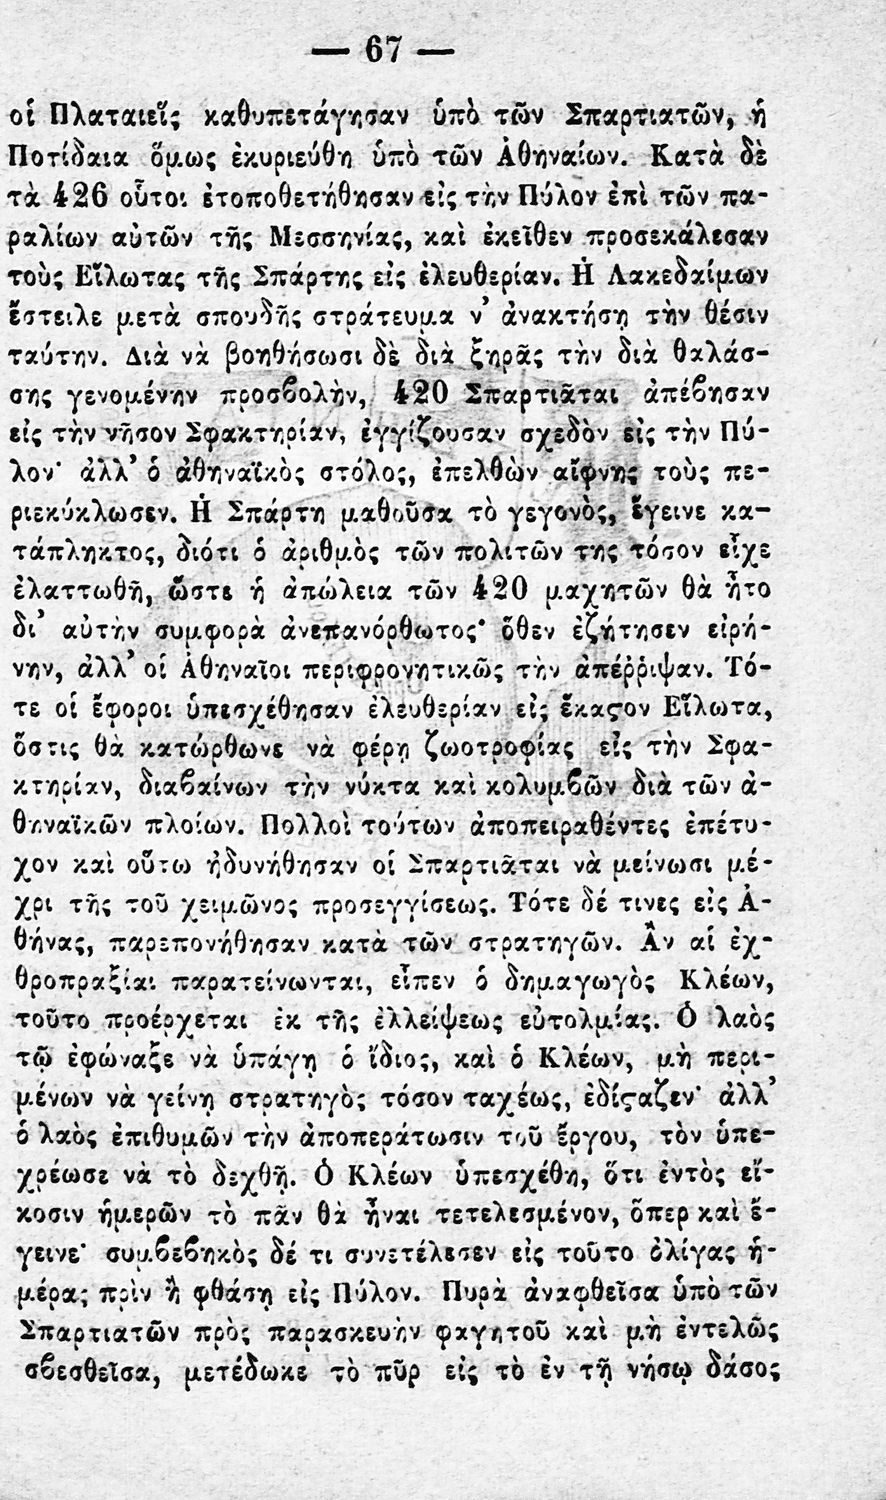 — 67 —
οἱ Πλαταιεῖς καθυπετάγησαν ὑπὸ τῶν Σπαρτιατῶν, ἡ
Ποτίδαια ὅμως ἐκυριεύθη ὑπὸ τῶν Ἀθηναίων. Κατὰ δὲ
τὰ 426 οὗτοι ἐτοποθετήθησαν εἰς τὴν Πύλον ἐπὶ τῶν πα-
ραλίων αὐτῶν τῆς Μεσσηνίας, καὶ ἐκεῖθεν προσεκάλεσαν
τοὺς Εἵλωτας τῆς Σπάρτης εἰς ἐλευθερίαν. Ἡ Λακεδαίμων
ἔστειλε μετὰ σπουδῆς στράτευμα ν’ ἀνακτήσῃ τὴν θέσιν
ταύτην. Διὰ νὰ βοηθήσωσι δὲ διὰ ξηρᾶς τὴν διὰ θαλάσ-
σης γενομένην προσϐολὴν, 420 Σπαρτιᾶται ἀπέϐησαν
εἰς τὴν νῆσον Σφακτηρίαν, ἐγγίζουσαν σχεδὸν εἰς τὴν Πύ-
λον· ἀλλ’ ὁ ἀθηναϊκὸς στόλος, ἐπελθὼν αἴφνης τοὺς πε-
ριεκύκλωσεν. Ἡ Σπάρτη μαθοῦσα τὸ γεγονὸς, ἔγεινε κα-
τάπληκτος, διότι ὁ ἀριθμὸς τῶν πολιτῶν της τόσον εἶχε
ἐλαττωθῆ, ὥστε ἡ ἀπώλεια τῶν 420 μαχητῶν θὰ ἦτο
δι’ αὐτὴν συμφορὰ ἀνεπανόρθωτος· ὅθεν ἐζήτησεν εἰρή-
νην, ἀλλ’ οἱ Ἀθηναῖοι περιφρονητικῶς τὴν ἀπέῤῥιψαν. Τό-
τε οἱ ἔφοροι ὑπεσχέθησαν ἐλευθερίαν εἰς ἕκαϛον Εἵλωτα,
ὅστις θὰ κατώρθωνε νὰ φέρῃ ζωοτροφίας εἰς τὴν Σφα-
κτηρίαν, διαϐαίνων τὴν νύκτα καὶ κολυμϐῶν διὰ τῶν ἀ-
θηναϊκῶν πλοίων. Πολλοὶ τούτων ἀποπειραθέντες ἐπέτυ-
χον καὶ οὕτω ἠδυνήθησαν οἱ Σπαρτιᾶται νὰ μείνωσι μέ-
χρι τῆς τοῦ χειμῶνος προσεγγίσεως. Τότε δέ τινες εἰς Ἀ-
θήνας, παρεπονήθησαν κατὰ τῶν στρατηγῶν. Ἂν αἱ ἐχ-
θροπραξίαι παρατείνωνται, εἶπεν ὁ δημαγωγὸς Κλέων,
τοῦτο προέρχεται ἐκ τῆς ἐλλείψεως εὐτολμίας. Ὁ λαὸς
τῷ ἐφώναξε νὰ ὑπάγῃ ὁ ἴδιος, καὶ ὁ Κλέων, μὴ περι-
μένων νὰ γείνῃ στρατηγὸς τόσον ταχέως, ἐδίϛαζεν· ἀλλ’
ὁ λαὸς ἐπιθυμῶν τὴν ἀποπεράτωσιν τοῦ ἔργου, τὸν ὑπε-
χρέωσε νὰ τὸ δεχθῇ. Ὁ Κλέων ὑπεσχέθη, ὅτι ἐντὸς εἴ-
κοσιν ἡμερῶν τὸ πᾶν θὰ ἦναι τετελεσμένον, ὅπερ καὶ ἔ-
γεινε· συμϐεϐηκὸς δέ τι συνετέλεσεν εἰς τοῦτο ὀλίγας ἡ-
μέρας πρὶν ἢ φθάσῃ εἰς Πύλον. Πυρὰ ἀναφθεῖσα ὑπὸ τῶν
Σπαρτιατῶν πρὸς παρασκευὴν φαγητοῦ καὶ μὴ ἐντελῶς
σϐεσθεῖσα, μετέδωκε τὸ πῦρ εἰς τὸ ἐν τῇ νήσῳ δάσος